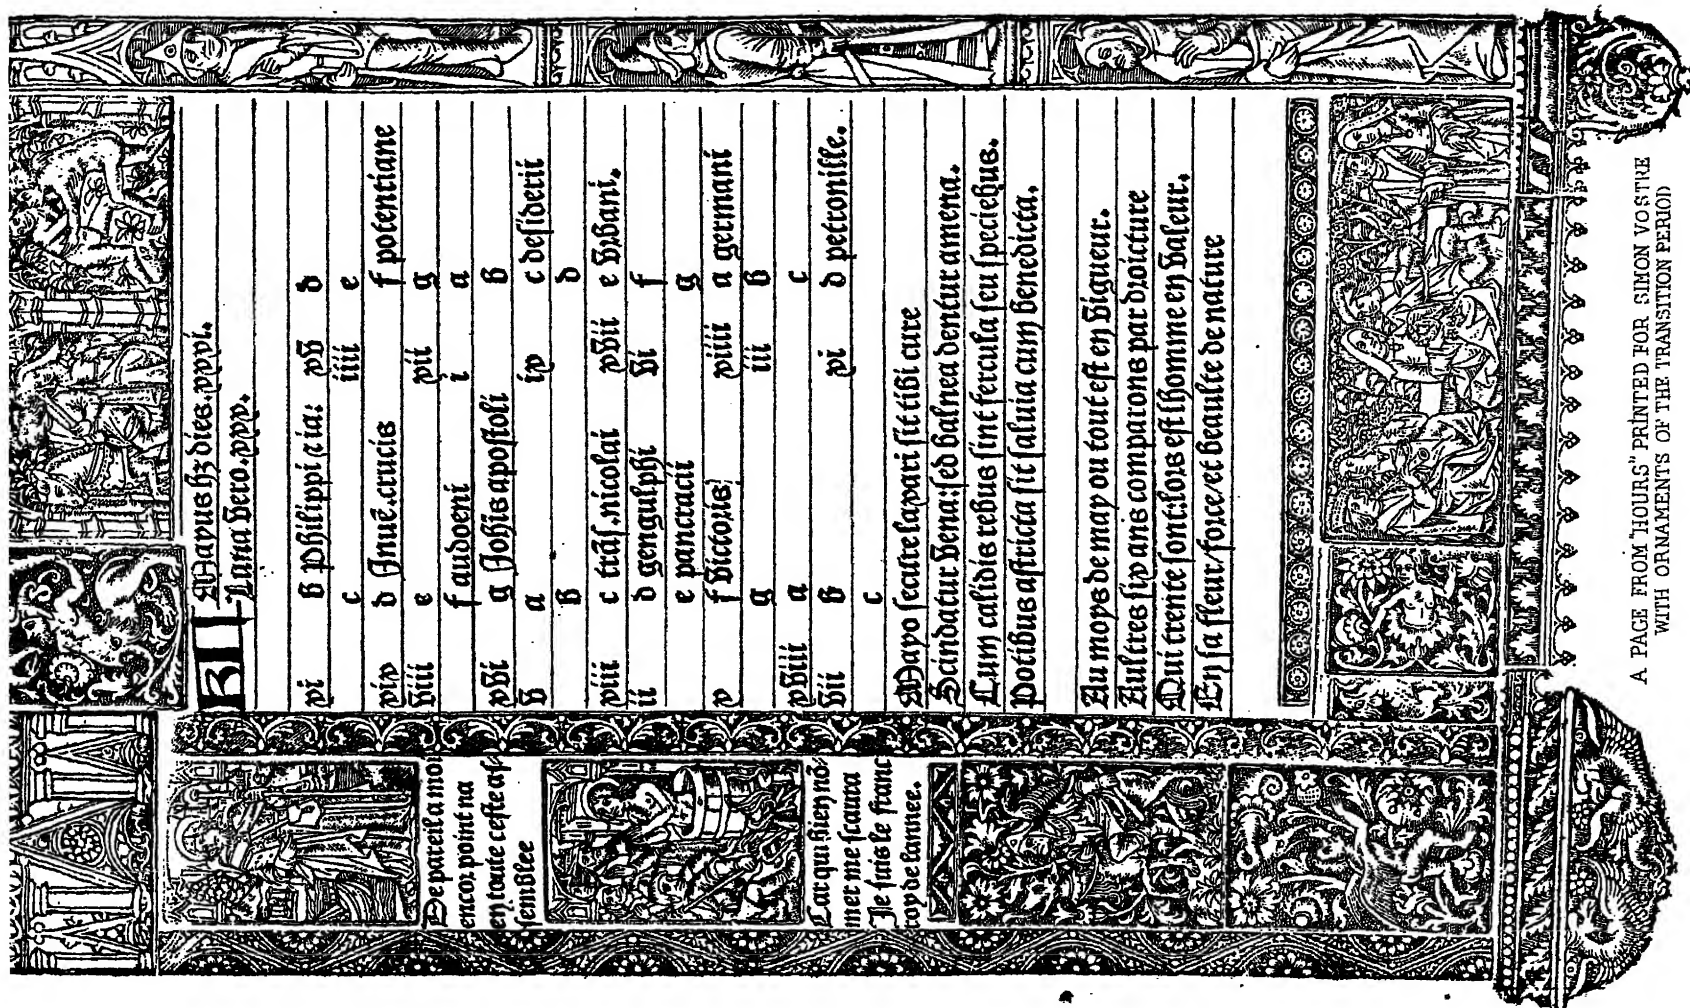 KL Mayus hz dies.xxxi.
Luna vero.xxx.
xi b philippi ⁊ ia: xv d
c iiii e
xix d Inuē.crucis f potentiane
viii e xii g
f audoeni i a
xvi g Johis apostoli b
v a ix c desiderii
b d
xiii c trāſ.nicolai xvii e vrbani.
ii d gengulphi vi f
e pancracii g
x f victoris xiiii a germani
g iii b
xviii a c
vii b xi d petronille.
c
Mayo secure laxari sit tibi cure
Scindatur vena:sed balnea dentur amena.
Cum calidis rebus sint fercula seu speciebus.
Potibus astricta sit saluia cum benedicta.
Au moys de may ou tout est en vigueur.
Aultres six ans comparons par droicture
Qui trente sont:lors est lhomme en valeur.
En sa fleur/force/et beaulte de nature
De pareil a moi
encor point na
en toute ceste as
semblee
Car qui bien nō
mer me scaura
Je suis le franc
roy de lannee.
A PAGE FROM "HOURS" PRINTED FOR SIMON VOSTRE
WITH ORNAMENTS OF THE TRANSITION PERIOD